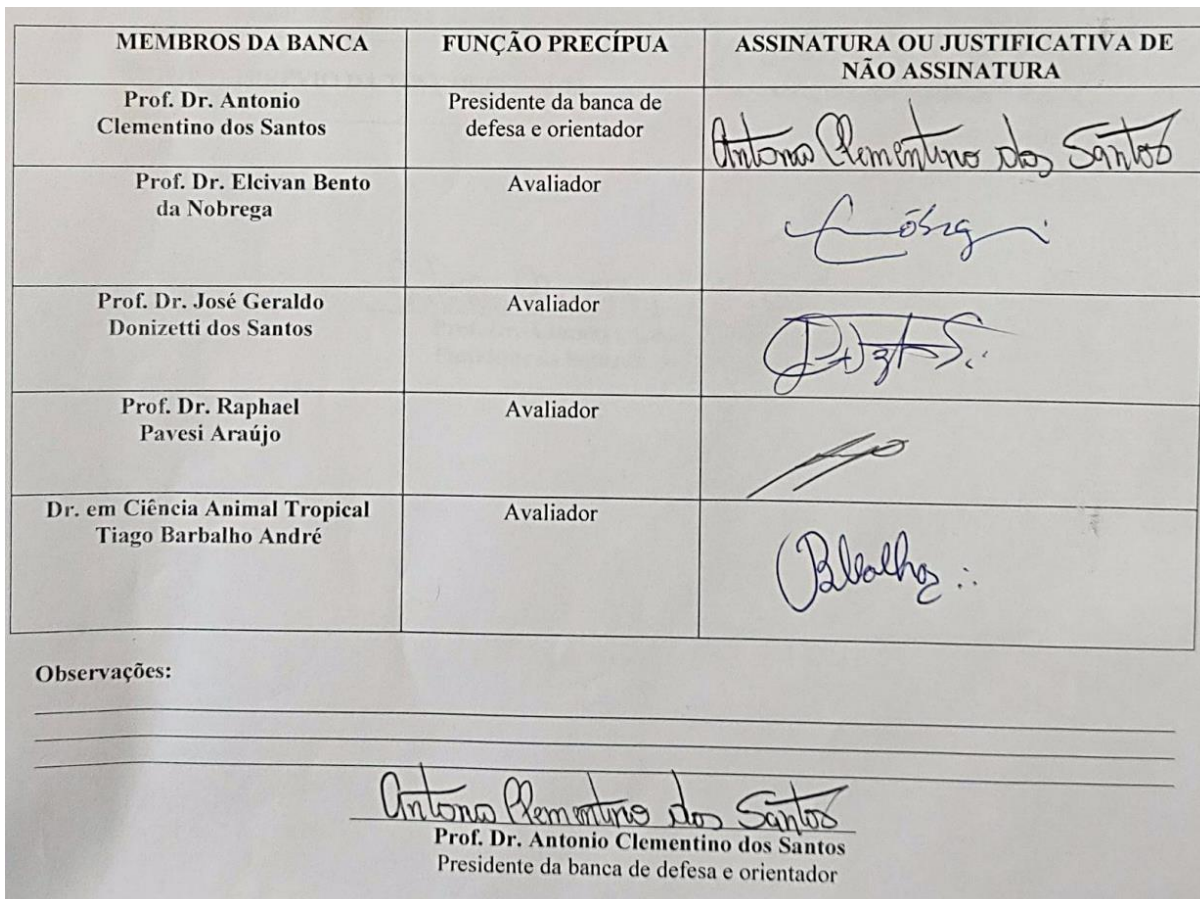 MEMBROS DA BANCA
FUNÇÃO PRECÍPUA
ASSINATURA OU JUSTIFICATIVA DE
NÃO ASSINATURA
Prof. Dr. Antonio
Clementino dos Santos
Presidente da banca de
defesa e orientador
Antonio Clementino dos Santos
Prof. Dr. Elcivan Bento
da Nobrega
Avaliador
Prof. Dr. José Geraldo
Donizetti dos Santos
Avaliador
Prof. Dr. Raphael
Pavesi Araújo
Avaliador
Dr. em Ciência Animal Tropical
Tiago Barbalho André
Avaliador
Observações:
Antonio Clementino dos Santos
Prof. Dr. Antonio Clementino dos Santos
Presidente da banca de defesa e orientador